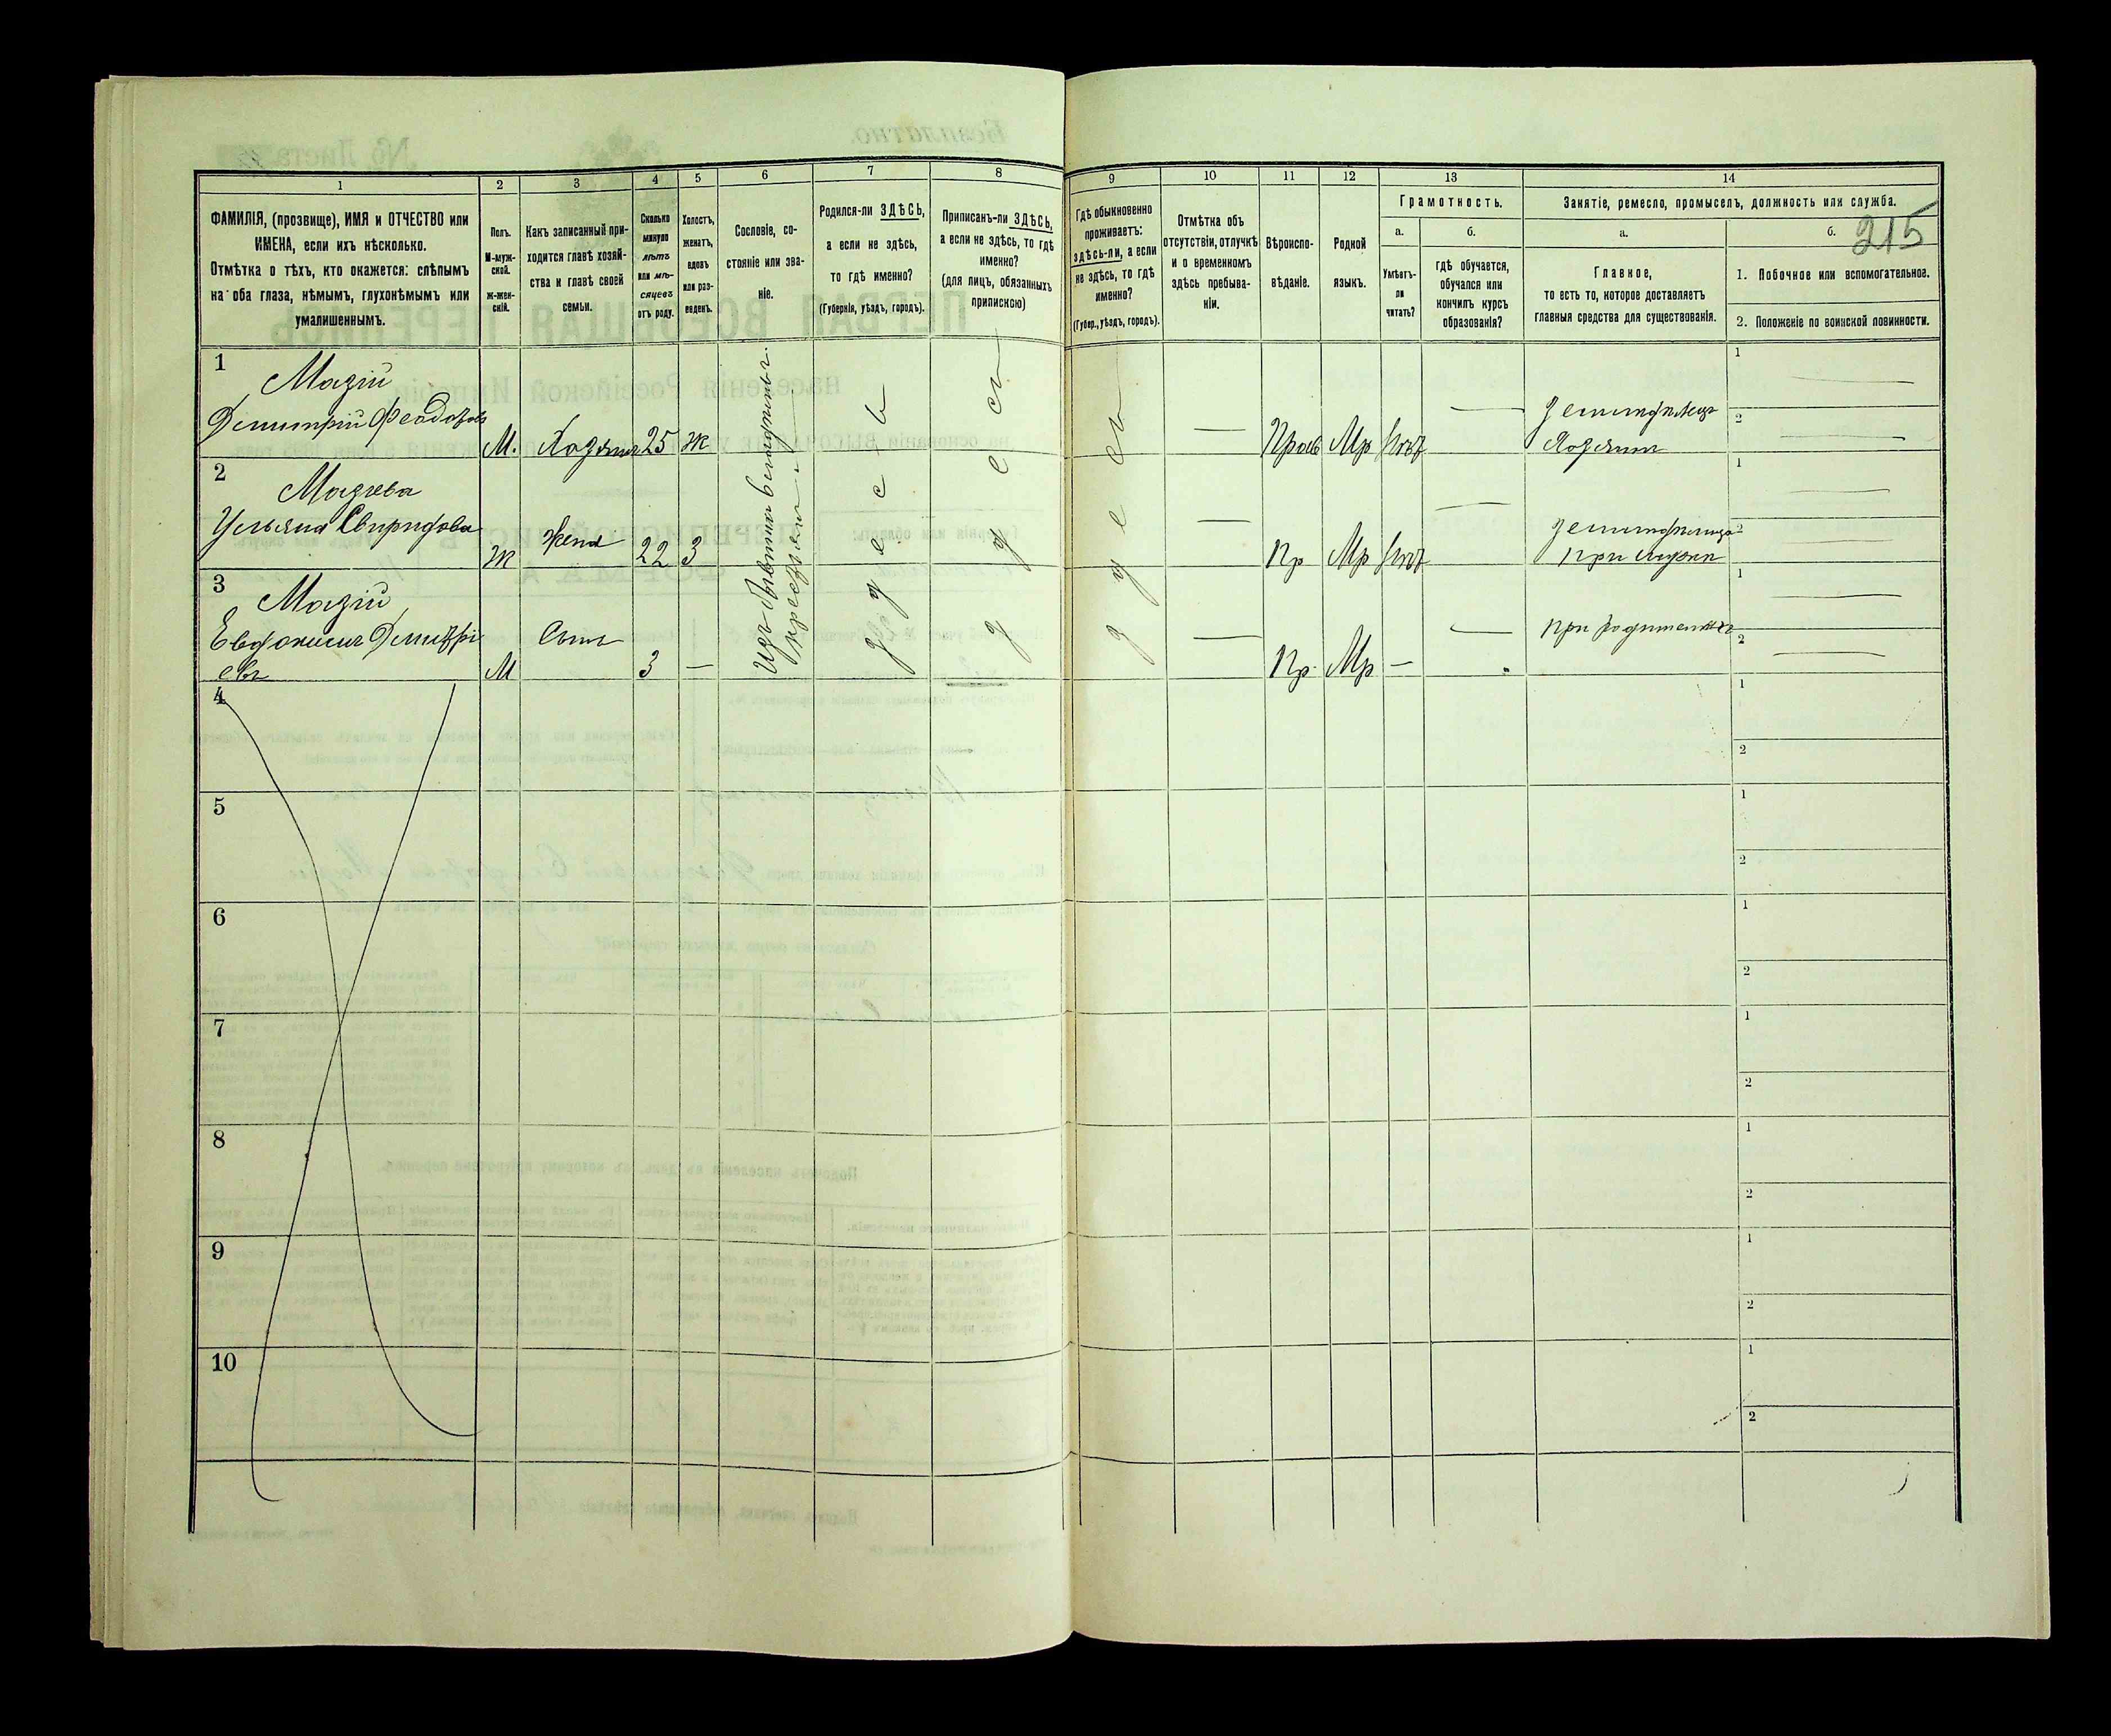 1 2 3 4 5 6 7 8 9 10 11 12 13 14
ФАМИЛІЯ, (прозвище), ИМЯ и ОТЧЕСТВО или
ИМЕНА, если ихъ нѣсколько.
Отмѣтка о тѣхъ, кто окажется: слѣпымъ
на оба глаза, нѣмымъ, глухонѣмымъ или
умалишеннымъ.
Полъ.
М-муж-
ской.
ж-жен-
скій.
Какъ записанный при-
ходится главѣ хозяй-
ства и главѣ своей
семьи.
Сколько
минуло
лѣтъ
или мѣ-
сяцевъ
отъ роду.
Холостъ,
женатъ,
вдовъ
или раз-
веденъ.
Сословіе, со-
стояніе или зва-
ніе.
Родился-ли ЗДѢСЬ,
а если не здѣсь,
то гдѣ именно?
(Губернія, уѣздъ, городъ).
Приписанъ-ли ЗДѢСЬ,
а если не здѣсь, то гдѣ
именно?
(для лицъ, обязанныхъ
припискою)
Гдѣ обыкновенно
проживаетъ:
здѣсь-ли, а если
не здѣсь, то гдѣ
именно?
(Губер., уѣздъ, городъ).
Отмѣтка объ
отсутствіи, отлучкѣ
и о временномъ
здѣсь пребыва-
ніи.
Вѣроиспо-
вѣданіе.
Родной
языкъ.
Грамотность.
а.
Умѣетъ-
ли
читать?
б.
гдѣ обучается,
обучался или
кончилъ курсъ
образованія?
Занятіе, ремесло, промыселъ, должность или служба.
а.
Главное,
то есть то, которое доставляетъ
главныя средства для существованія.
б.
215
1. Побочное или вспомогательное.
2. Положеніе по воинской повинности.
1
Мазій
Демитрій Феодоровъ
М. Хозяинъ 25 ж
здесь
здесь
здесь
— Прав Мр нѣт —
земледѣлецъ
Хозяинъ
1
2
2
Мазіева
Ульяна Свиридова
Ж Жена 22 З
— Пр Мр нѣт —
при мужѣ
1
2
3
Мазій
Евдокимъ Демитрі
евъ
М Сынъ 3 —
— Пр. Мр — —
при родителяхъ
1
2
Изъ бывших
крестьян
4
1
2
5
1
2
6
1
2
7
1
2
8
1
2
9
1
2
10
1
2